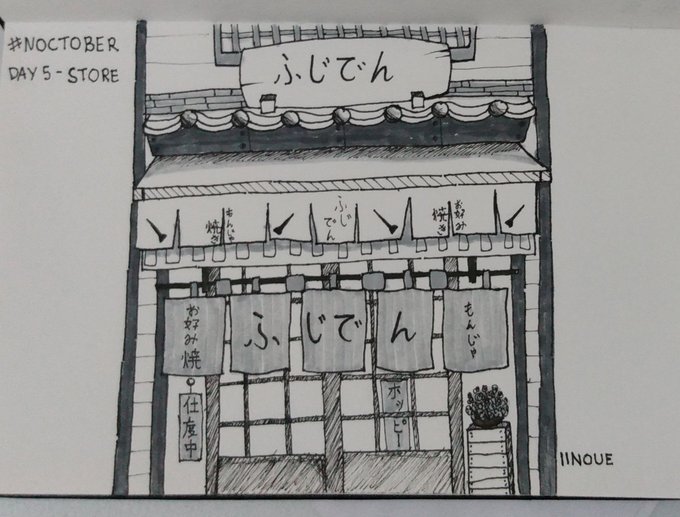 #NOCTOBER
DAY 5 - STORE
ふじでん
もんじゃ
焼き
ふじ
でん
お好み
焼き
お好み焼
ふじでん
もんじゃ
仕度中
ホッピー
IINOUE